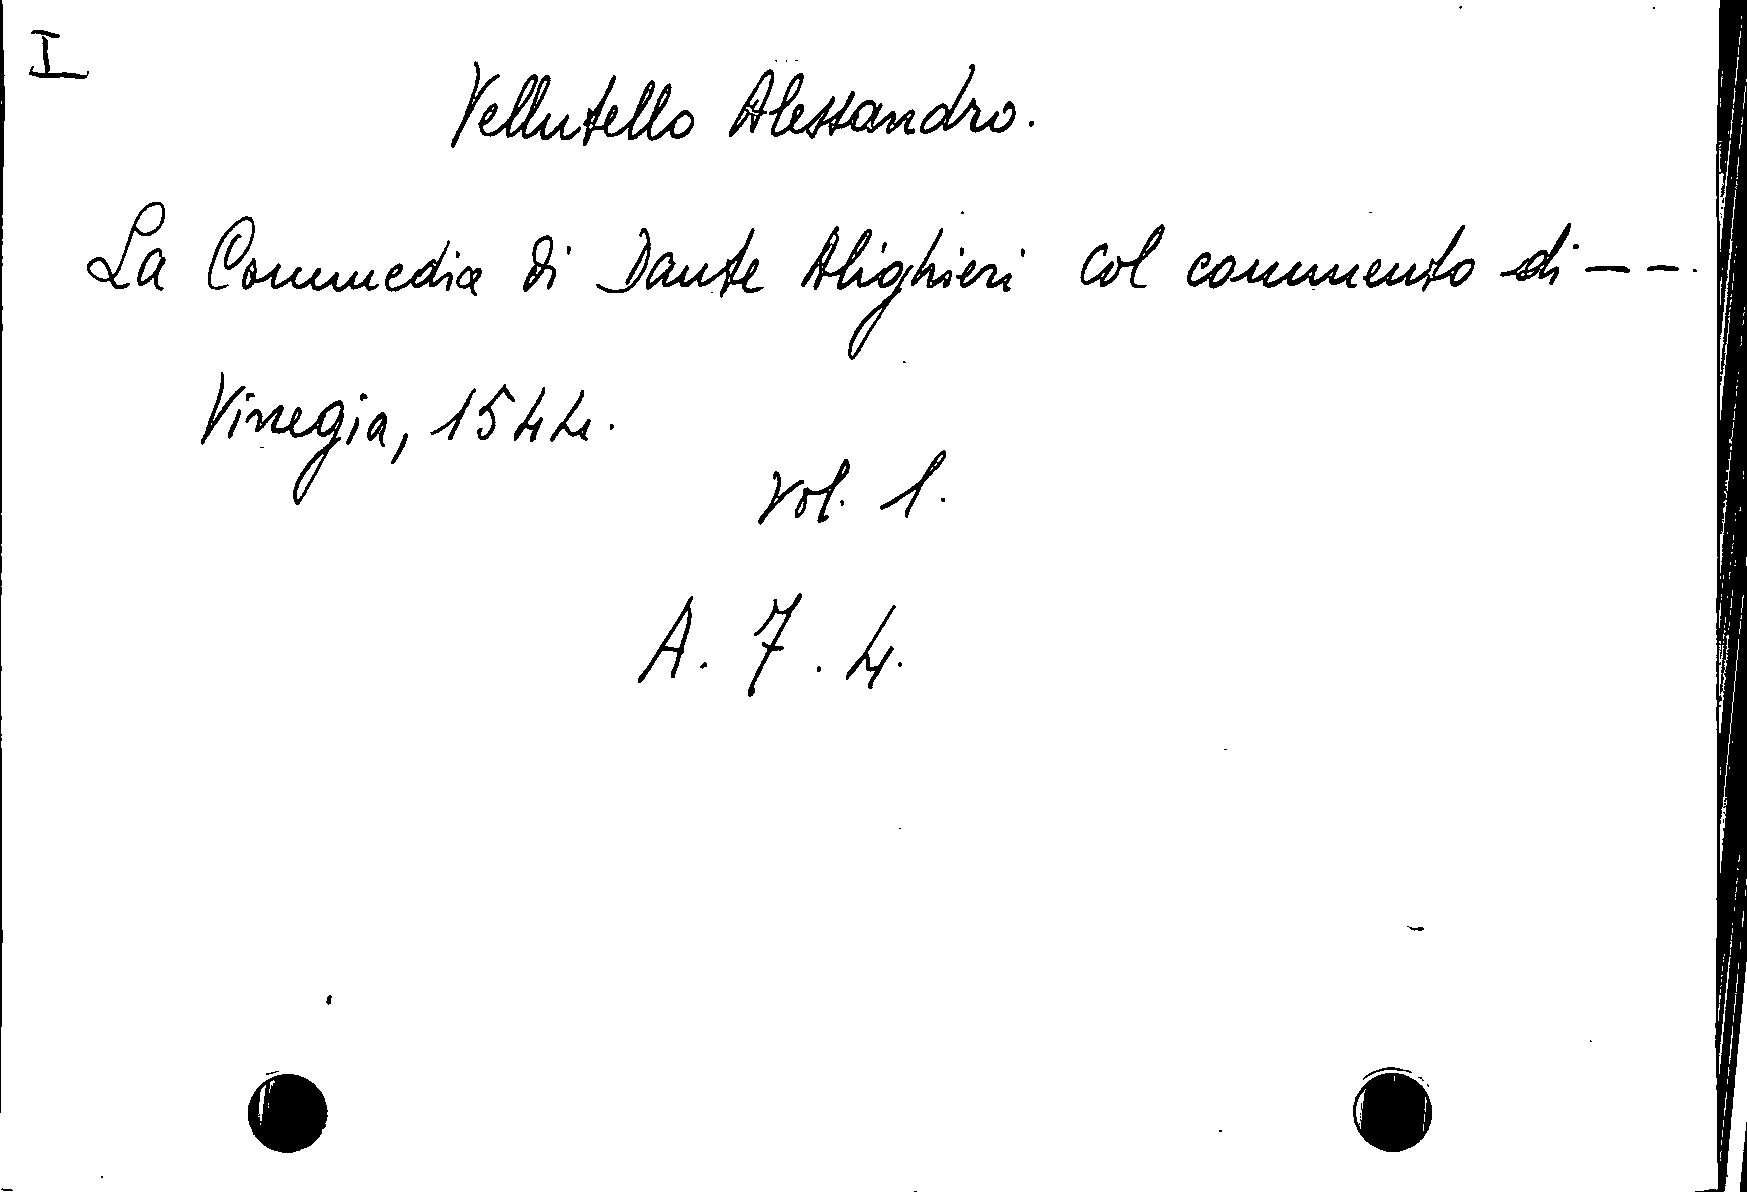 I
Vellutello Alessandro.
La Commedia di Dante Alighieri col commento di – –.
Vinegia, 1544.
Vol. 1.
A. 7. 4.